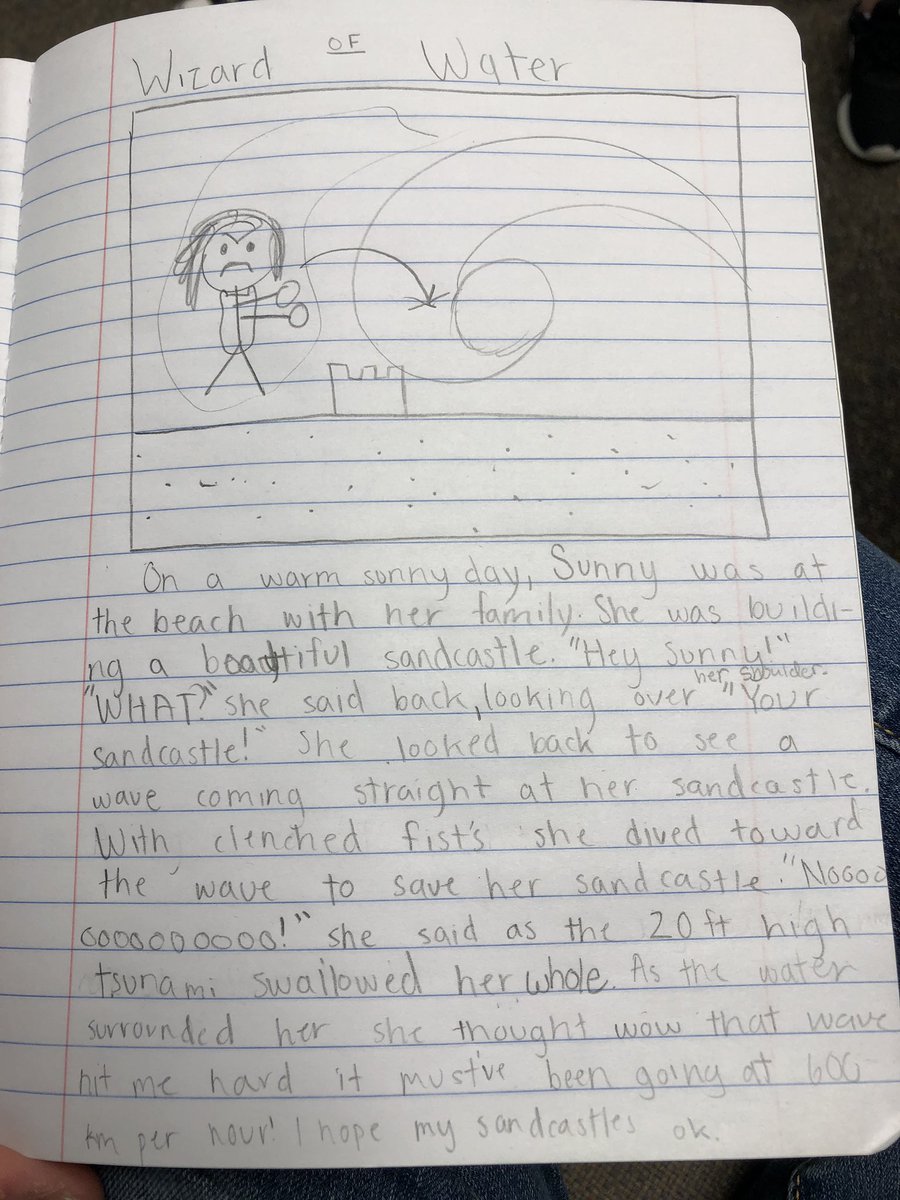 Wizard OF Water
On a warm sonny day, Sunny was at
the beach with her family. She was buildi-
ng a beautiful sandcastle. "Hey Sunny!"
her shoulder.
"WHAT?" she said back, looking over "Your
sandcastle!" She looked back to see a
wave coming straight at her sandcastle.
With clenched fist's she dived toward
the wave to save her sandcastle. "Noooo
oooooooooo!" she said as the 20ft high
tsunami swallowed her whole. As the water
surrounded her she thought wow that wave
hit me hard it must've been going at 600
km per hour! I hope my sandcastles ok.